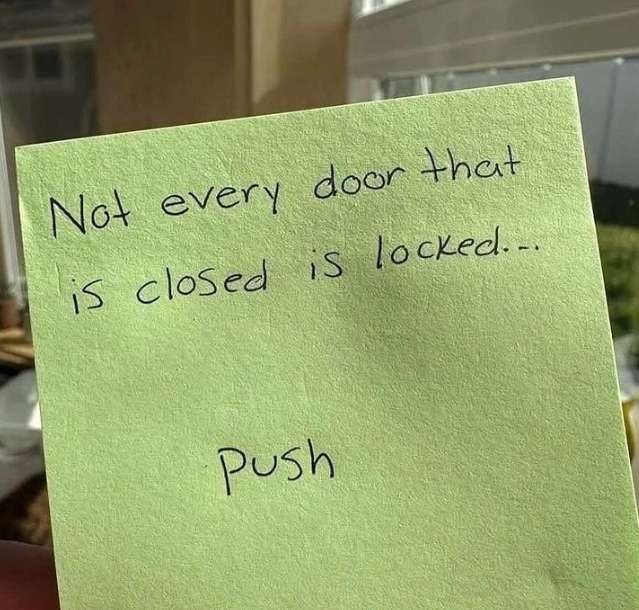 Not every door that
is closed is locked...
Push